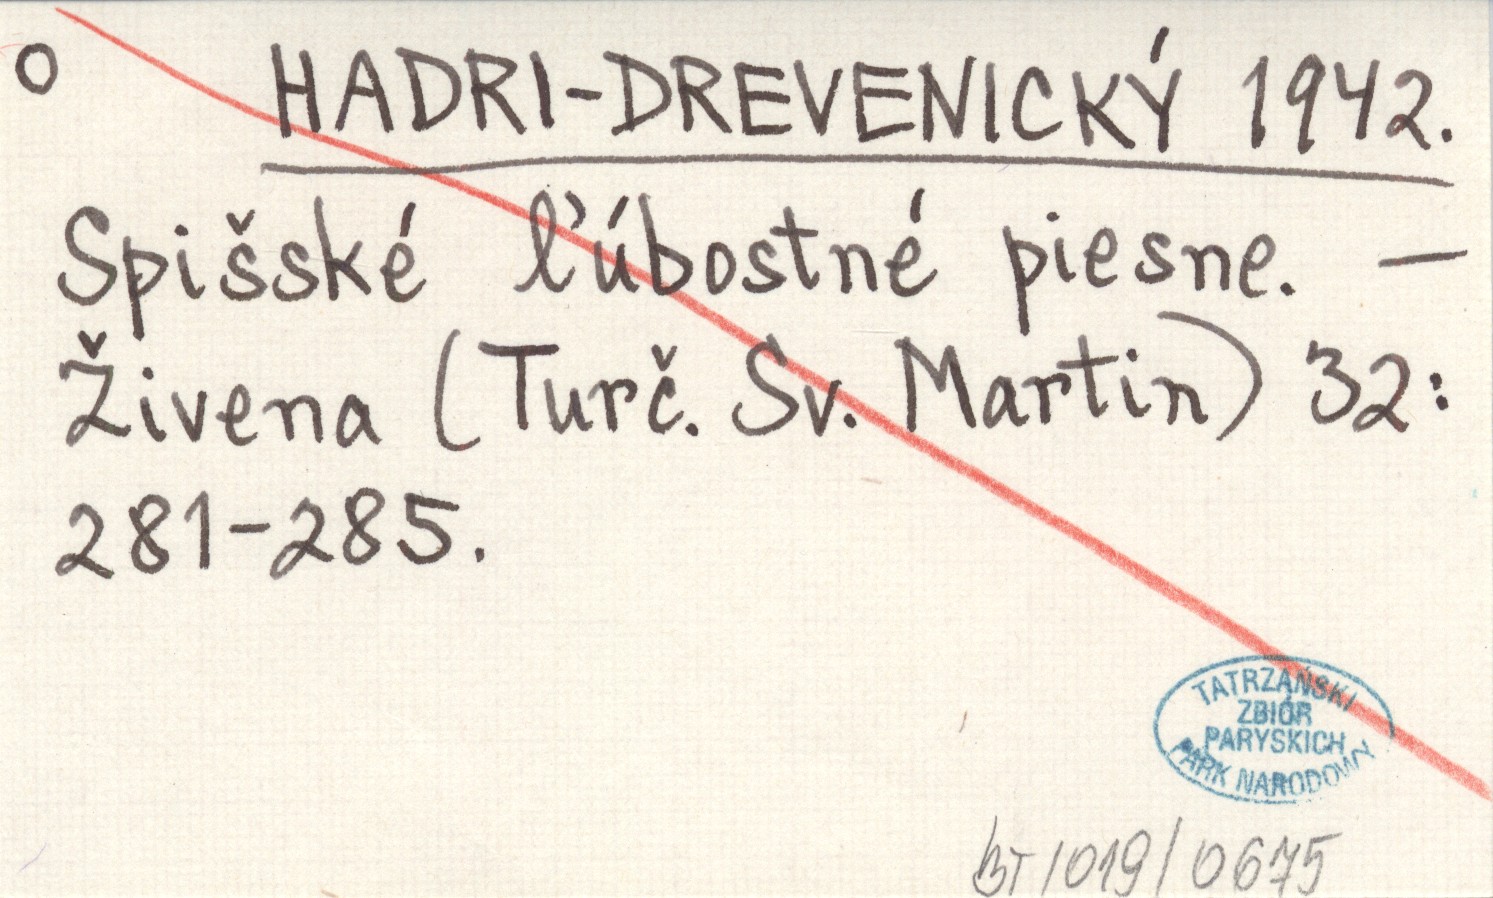 O HADRI-DREVENICKÝ 1942.
Spišské ľúbostné piesne. —
Živena (Turč. Sv. Martin) 32:
281-285.
TATRZAŃSKI
ZBIÓR
PARYSKICH
PARK NARODOWY
BT/019/0675